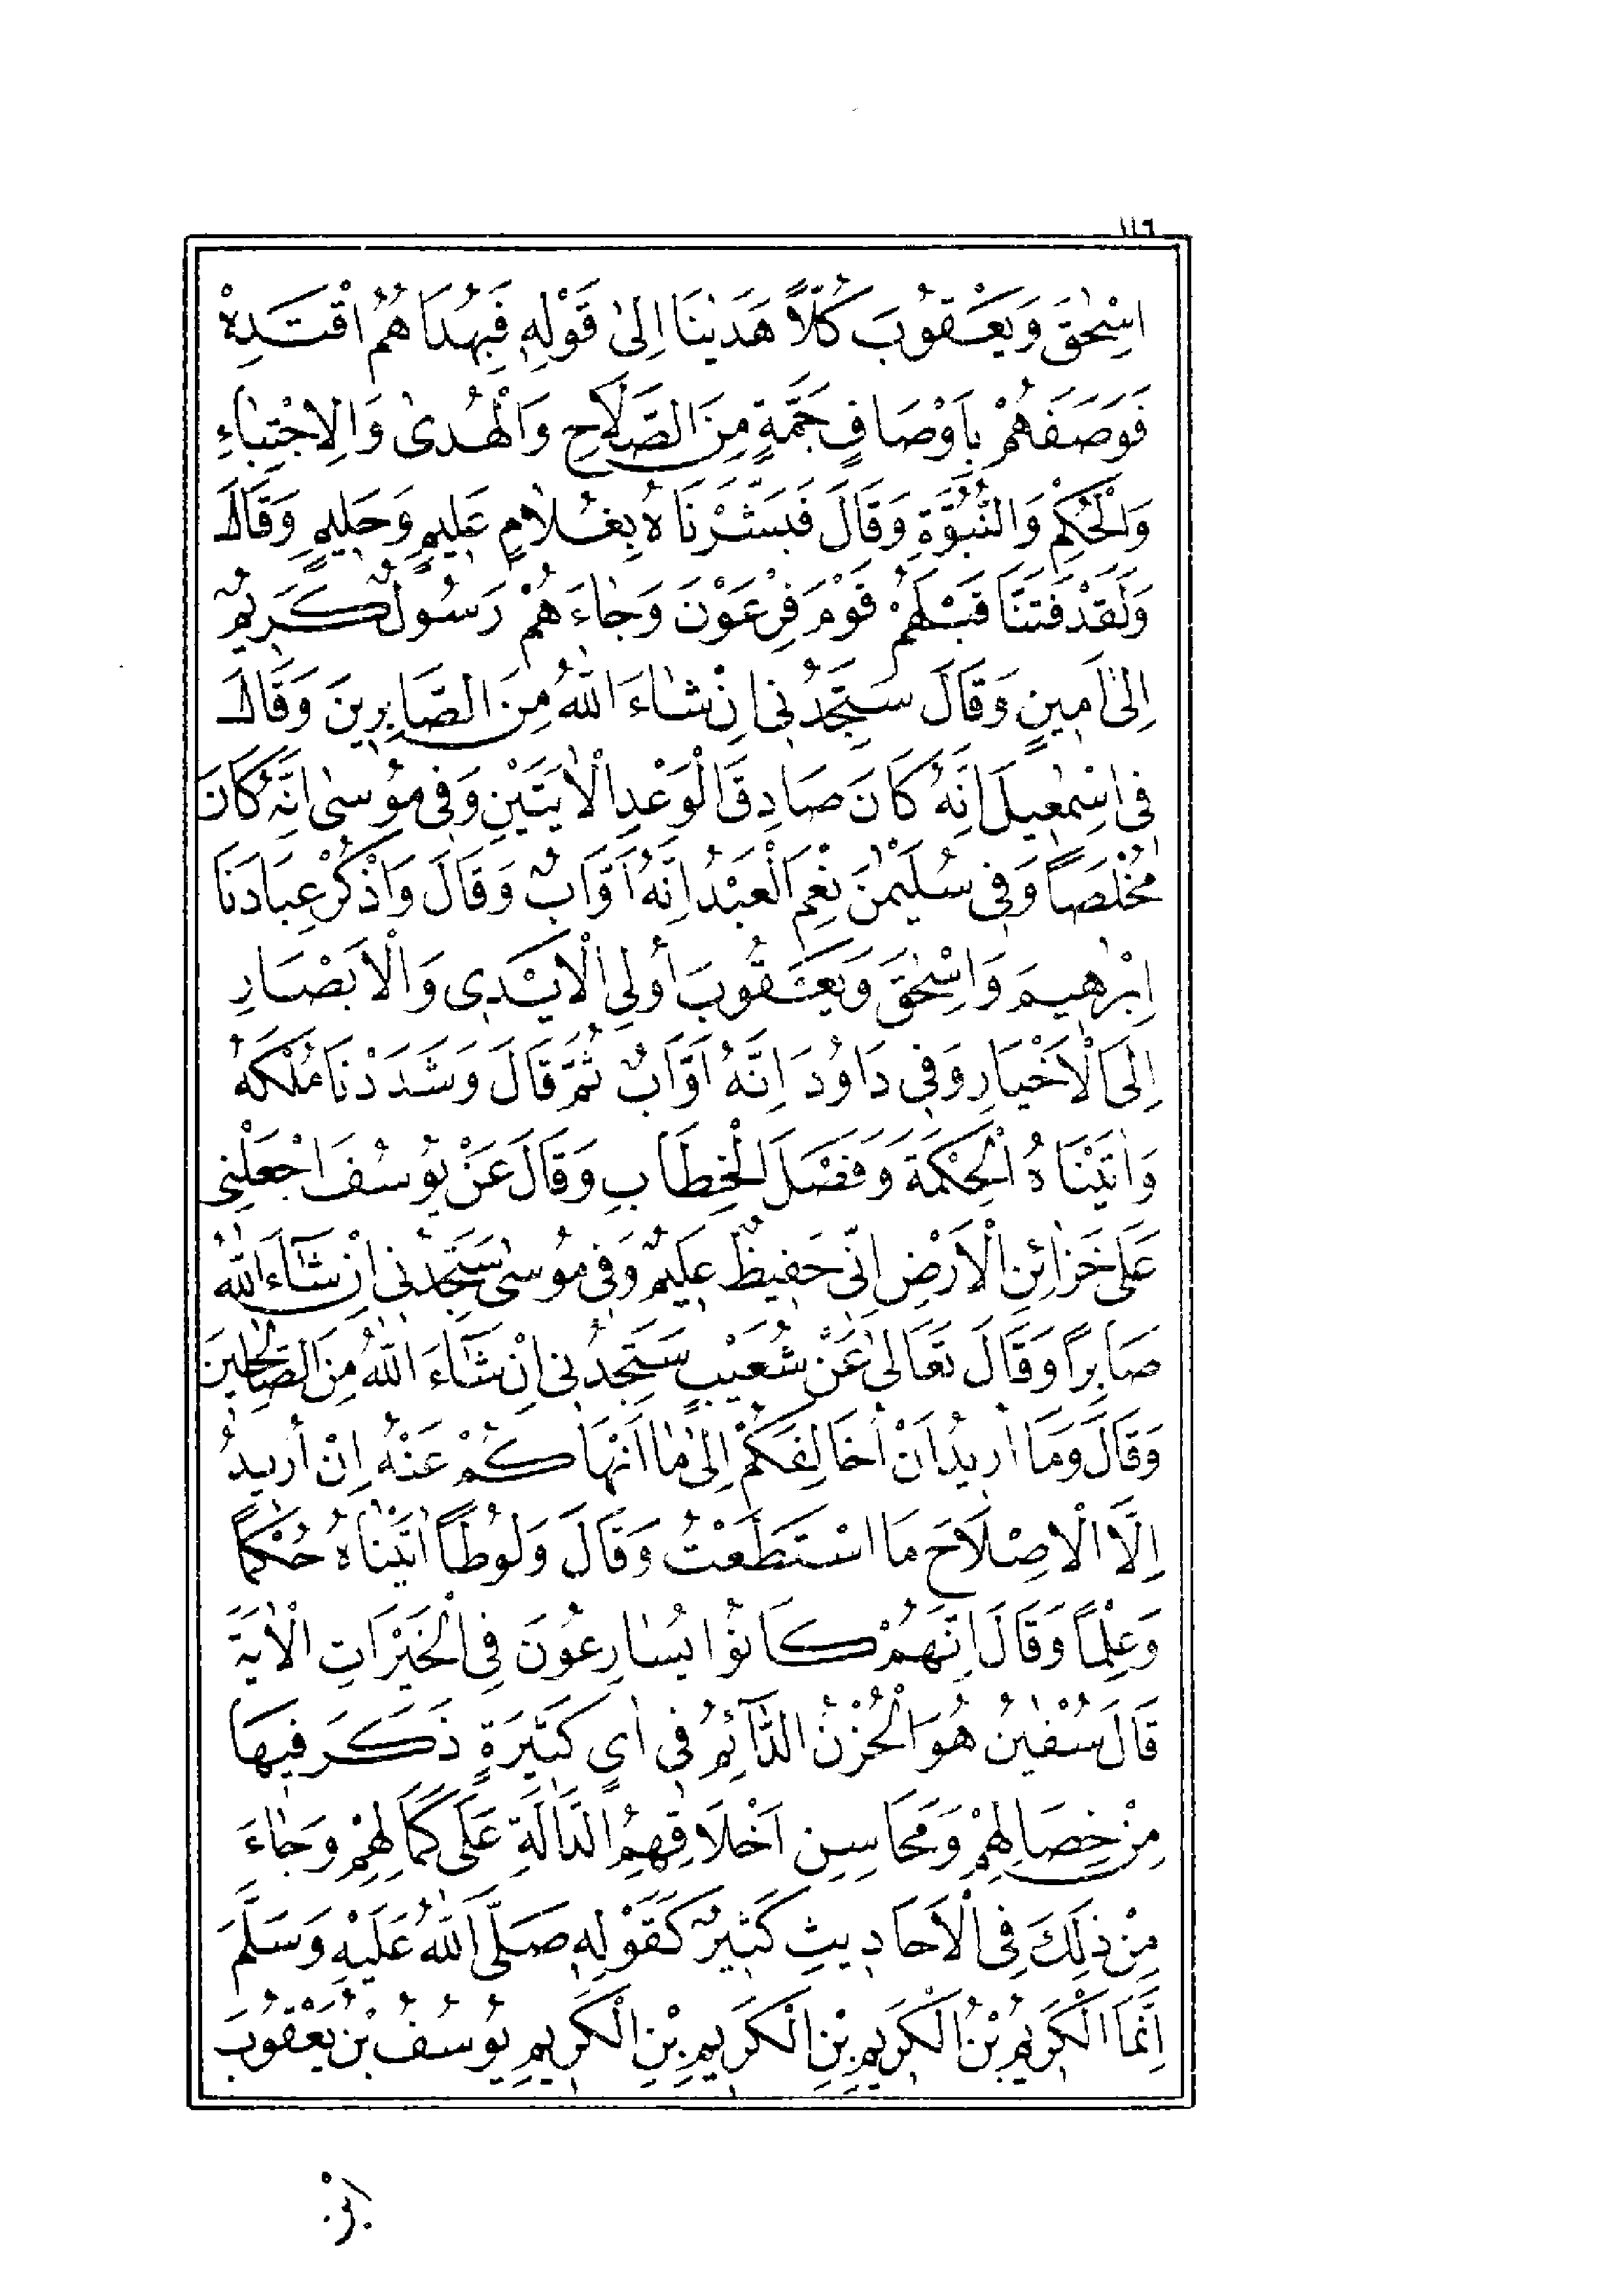 ١١٦
اِسْحٰقَ وَيَعْقُوبَ كُلًّا هَدَيْنَا اِلىٰ قَوْلِهِ فَبِهُدَاهُمُ اقْتَدِهْ
فَوَصَفَهُمْ بِاَوْصَافٍ جَمَّةٍ مِنَ الصَّلَاحِ وَالْهُدىٰ وَالِاجْتِبَاءِ
وَالْحُكْمِ وَالنُّبُوَّةِ وَقَالَ فَبَشَّرْنَاهُ بِغُلَامٍ عَلِيمٍ وَحَلِيمٍ وَقَالَ
وَلَقَدْ فَتَنَّا قَبْلَهُمْ قَوْمَ فِرْعَوْنَ وَجَاءَهُمْ رَسُولٌ كَرِيمٌ
اِلىٰ اَمِينٍ وَقَالَ سَتَجِدُنِي اِنْ شَاءَ اللّٰهُ مِنَ الصَّابِرِينَ وَقَالَ
فِي اِسْمٰعِيلَ اِنَّهُ كَانَ صَادِقَ الْوَعْدِ الْاٰيَتَيْنِ وَفِي مُوسىٰ اِنَّهُ كَانَ
مُخْلَصًا وَفِي سُلَيْمٰنَ نِعْمَ الْعَبْدُ اِنَّهُ اَوَّابٌ وَقَالَ وَاذْكُرْ عِبَادَنَا
اِبْرٰهِيمَ وَاِسْحٰقَ وَيَعْقُوبَ اُولِي الْاَيْدِي وَالْاَبْصَارِ
اِلَى الْاَخْيَارِ وَفِي دَاوُدَ اِنَّهُ اَوَّابٌ ثُمَّ قَالَ وَشَدَدْنَا مُلْكَهُ
وَاٰتَيْنَاهُ الْحِكْمَةَ وَفَصْلَ الْخِطَابِ وَقَالَ عَنْ يُوسُفَ اجْعَلْنِي
عَلىٰ خَزَائِنِ الْاَرْضِ اِنِّي حَفِيظٌ عَلِيمٌ وَفِي مُوسىٰ سَتَجِدُنِي اِنْ شَآءَ اللّٰهُ
صَابِرًا وَقَالَ تَعَالىٰ عَنْ شُعَيْبٍ سَتَجِدُنِي اِنْ شَآءَ اللّٰهُ مِنَ الصَّالِحِينَ
وَقَالَ وَمَا اُرِيدُ اَنْ اُخَالِفَكُمْ اِلىٰ مَا اَنْهَاكُمْ عَنْهُ اِنْ اُرِيدُ
اِلَّا الْاِصْلَاحَ مَا اسْتَطَعْتُ وَقَالَ وَلُوطًا اٰتَيْنَاهُ حُكْمًا
وَعِلْمًا وَقَالَ اِنَّهُمْ كَانُوا يُسَارِعُونَ فِي الْخَيْرَاتِ الْاٰيَةَ
قَالَ سُفْيٰنُ هُوَ الْحُزْنُ الدَّآئِمُ فِي اٰيٍ كَثِيرَةٍ ذَكَرَ فِيهَا
مِنْ خِصَالِهِمْ وَمَحَاسِنِ اَخْلَاقِهِمُ الدَّالَّةِ عَلىٰ كَمَالِهِمْ وَجَاءَ
مِنْ ذٰلِكَ فِي الْاَحَادِيثِ كَثِيرٌ كَقَوْلِهِ صَلَّى اللّٰهُ عَلَيْهِ وَسَلَّمَ
اِنَّمَا الْكَرِيمُ بْنُ الْكَرِيمِ بْنِ الْكَرِيمِ بْنِ الْكَرِيمِ يُوسُفُ بْنُ يَعْقُوبَ
ابْنِ